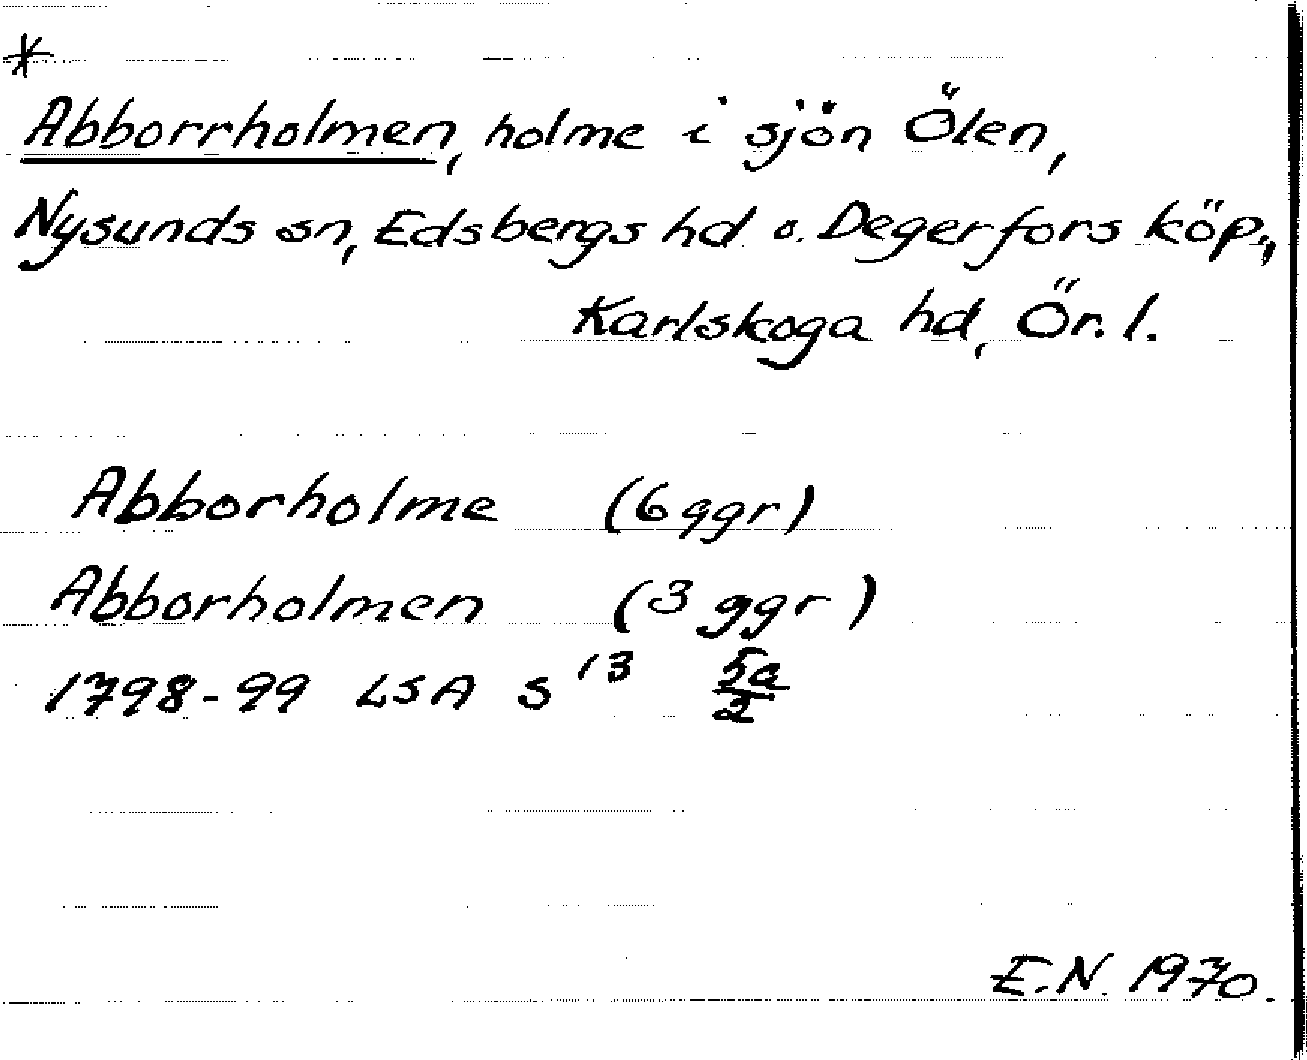 *
Abborrholmen, holme i sjön Ölen,
Nysunds sn, Edsbergs hd o. Degerfors köp.,
Karlskoga hd, Ör. l.
Abborholme (6 ggr)
Abborholmen (3 ggr)
1798-99 LSA S 13 5a/2
E.N. 1970.